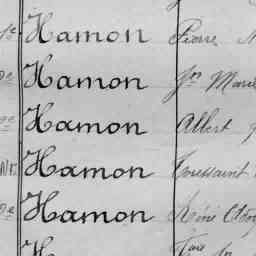 Hamon Pierre
Hamon Jn Marie
Hamon Albert
Hamon Toussaint
Hamon René